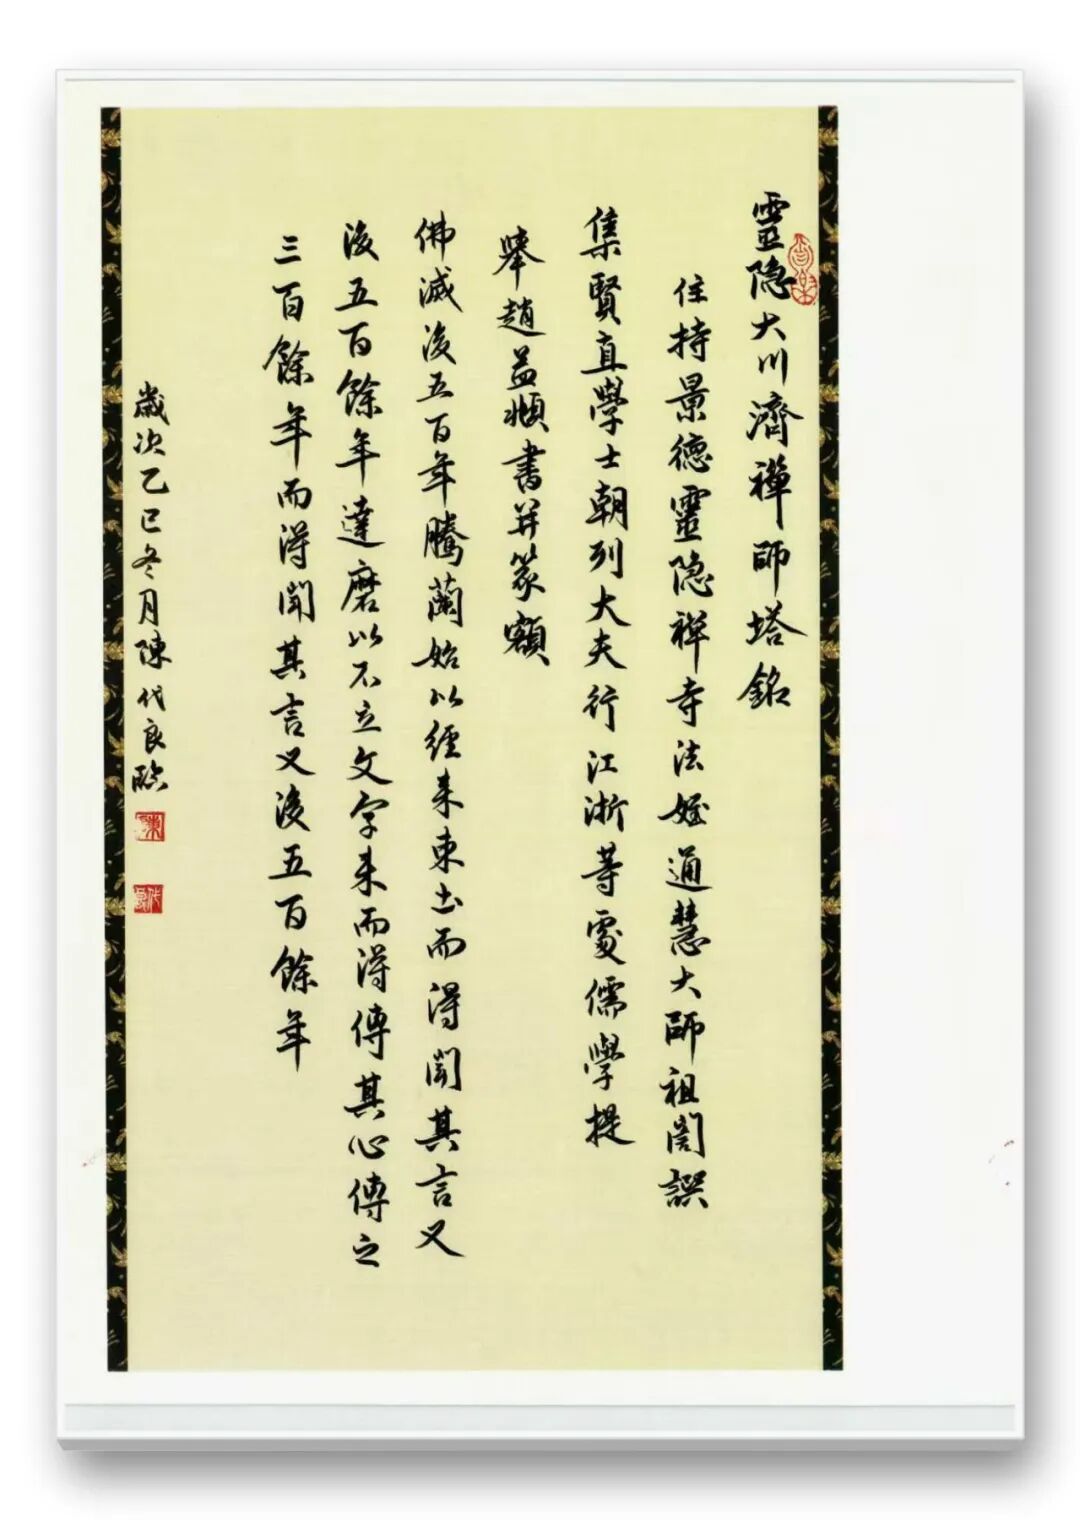 靈隐大川濟禪師塔銘
住持景德靈隐禅寺法姪通慧大師祖訚譔
集賢直學士朝列大夫行江浙等處儒學提
舉趙孟頫書并篆額
佛滅後五百年騰蘭始以經来東土而得聞其言又
後五百餘年達磨以不立文字来而得傳其心傳之
三百餘年而得聞其言又後五百餘年
歲次乙巳冬月陳代良臨